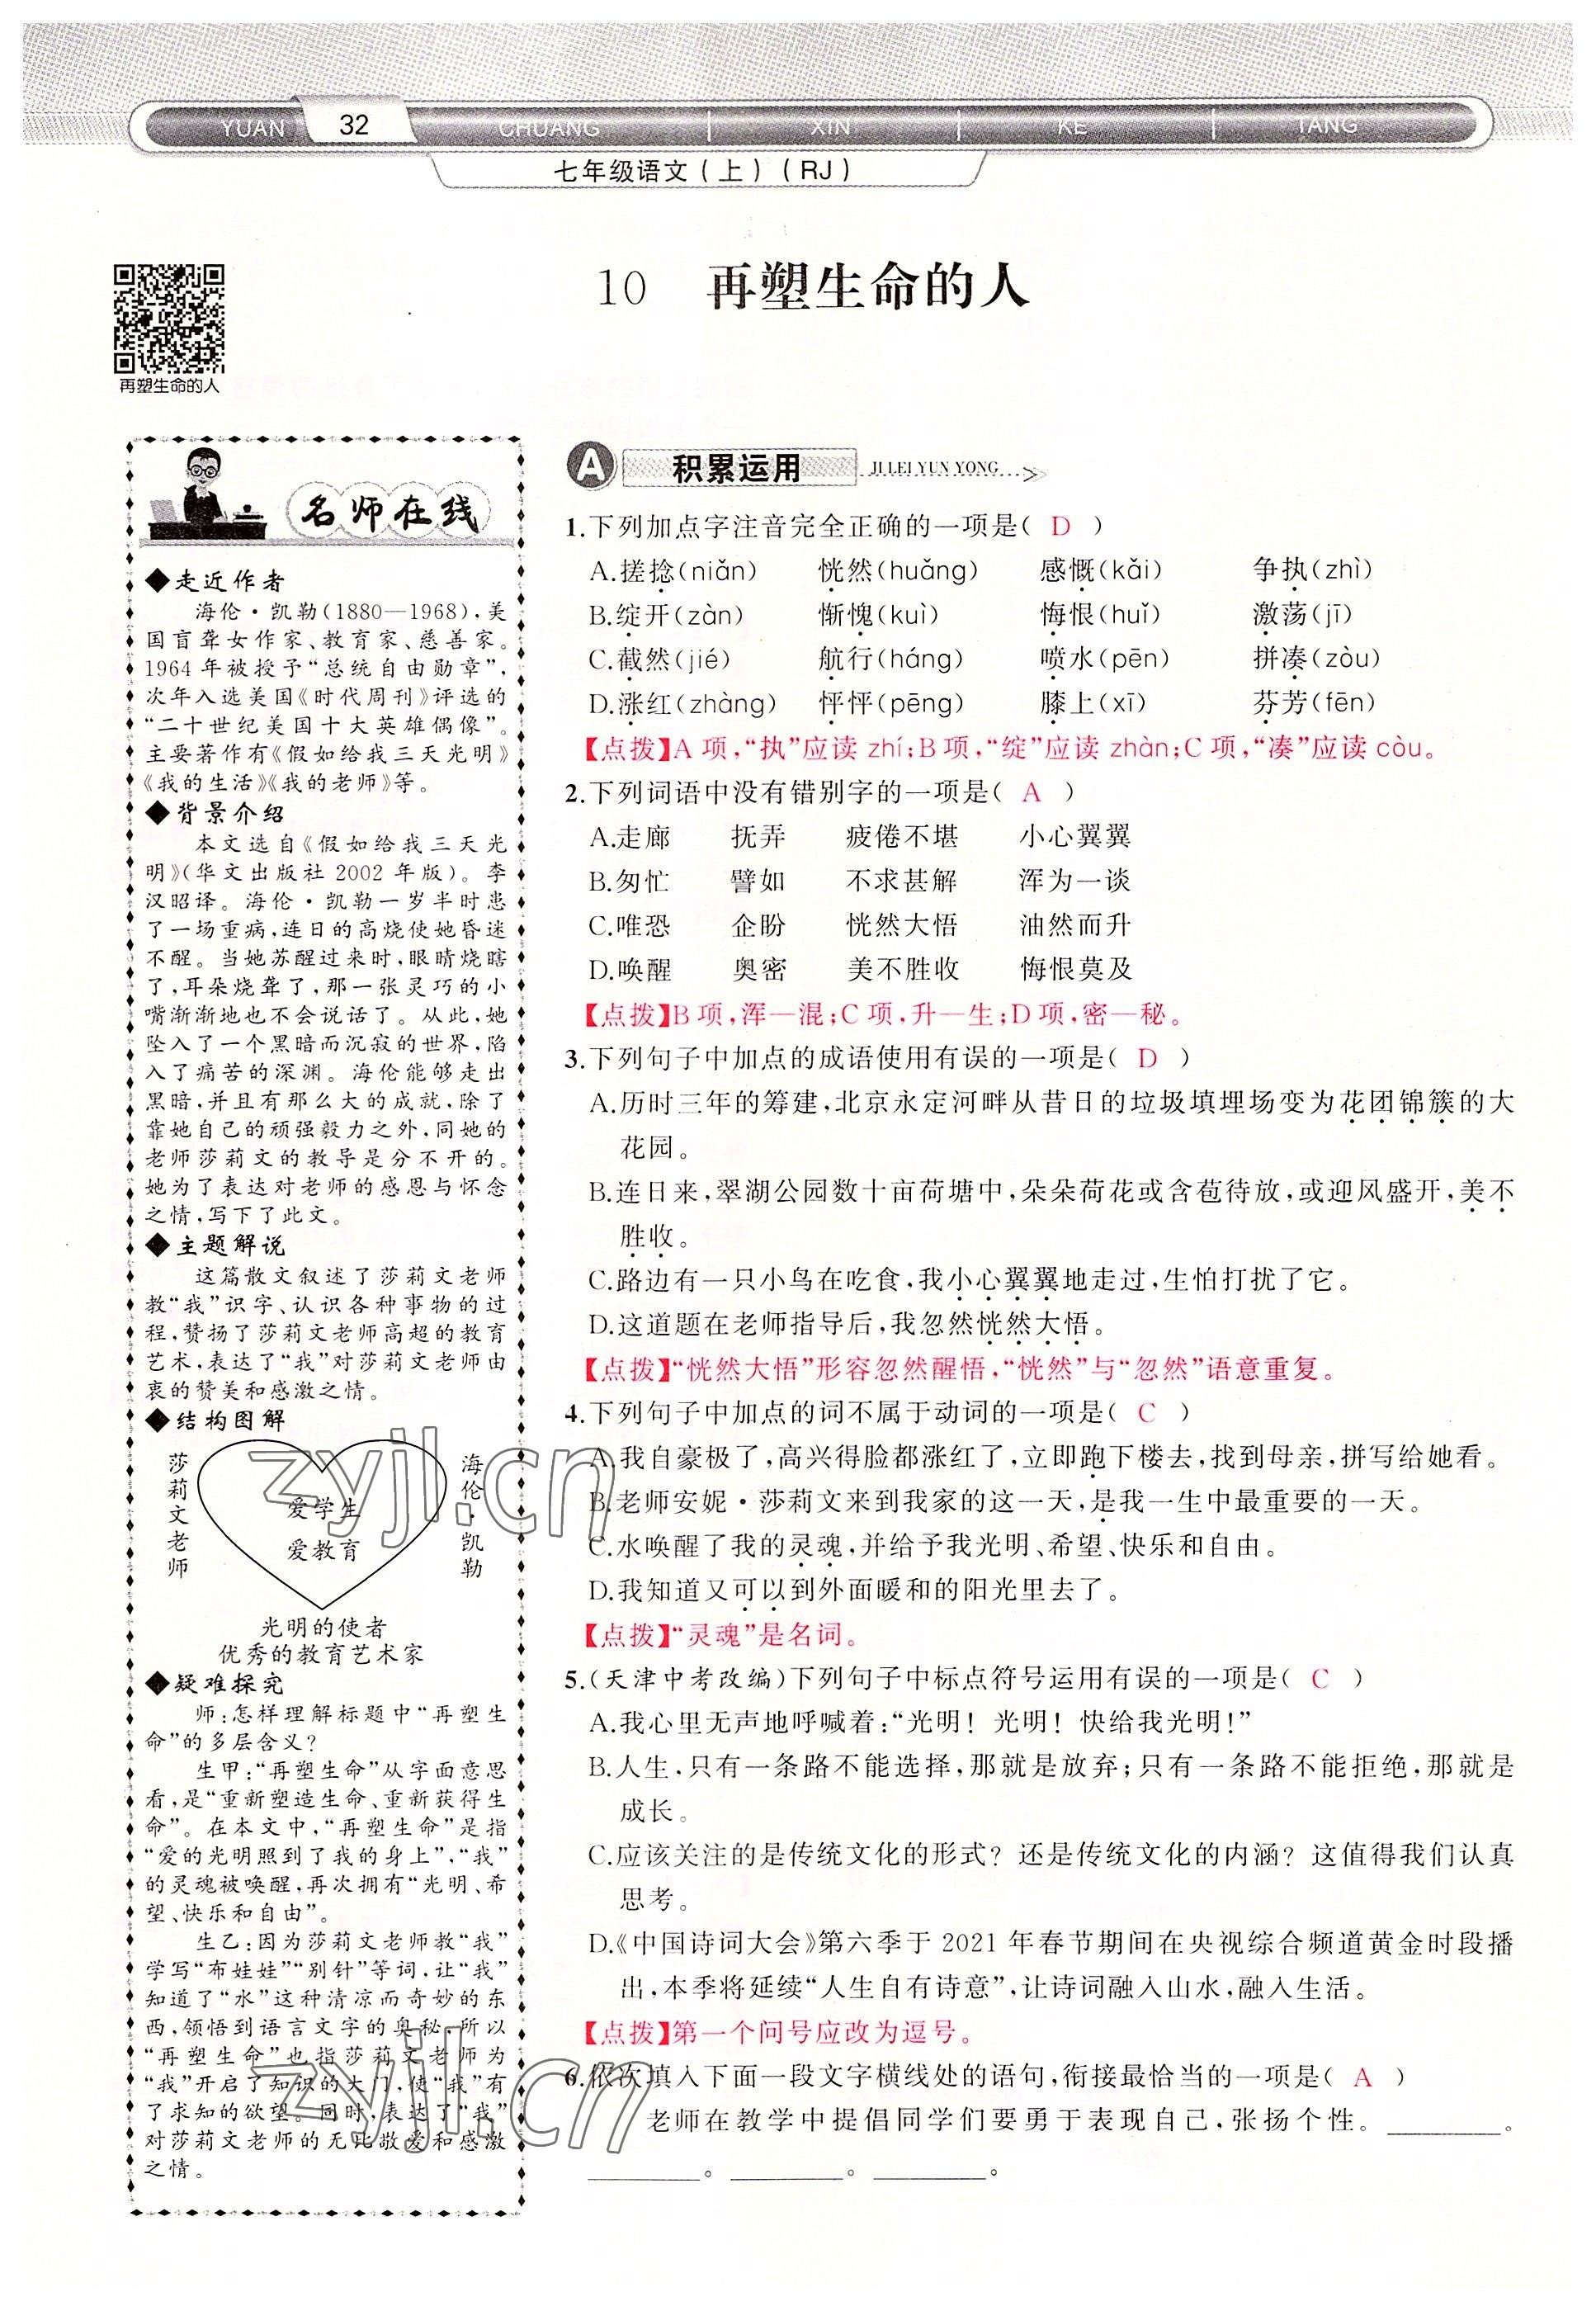 YUAN 32 CHUANG XIN KE TANG
七年级语文(上)(RJ)
10 再塑生命的人
再塑生命的人
名师在线
◆走近作者
海伦·凯勒(1880—1968),美
国盲聋女作家、教育家、慈善家。
1964年被授予“总统自由勋章”,
次年入选美国《时代周刊》评选的
“二十世纪美国十大英雄偶像”。
主要著作有《假如给我三天光明》
《我的生活》《我的老师》等。
◆背景介绍
本文选自《假如给我三天光
明》(华文出版社2002年版)。李
汉昭译。海伦·凯勒一岁半时患
了一场重病,连日的高烧使她昏迷
不醒。当她苏醒过来时,眼睛烧瞎
了,耳朵烧聋了,那一张灵巧的小
嘴渐渐地也不会说话了。从此,她
坠入了一个黑暗而沉寂的世界,陷
入了痛苦的深渊。海伦能够走出
黑暗,并且有那么大的成就,除了
靠她自己的顽强毅力之外,同她的
老师莎莉文的教导是分不开的。
她为了表达对老师的感恩与怀念
之情,写下了此文。
◆主题解说
这篇散文叙述了莎莉文老师
教“我”识字、认识各种事物的过
程,赞扬了莎莉文老师高超的教育
艺术,表达了“我”对莎莉文老师由
衷的赞美和感激之情。
◆结构图解
莎莉文老师
爱学生
爱教育
海伦·凯勒
光明的使者
优秀的教育艺术家
◆疑难探究
师:怎样理解标题中“再塑生
命”的多层含义?
生甲:“再塑生命”从字面意思
看,是“重新塑造生命、重新获得生
命”。在本文中,“再塑生命”是指
“爱的光明照到了我的身上”,“我”
的灵魂被唤醒,再次拥有“光明、希
望、快乐和自由”。
生乙:因为莎莉文老师教“我”
学写“布娃娃”“别针”等词,让“我”
知道了“水”这种清凉而奇妙的东
西,领悟到语言文字的奥秘,所以
“再塑生命”也指莎莉文老师为
“我”开启了知识的大门,使“我”有
了求知的欲望。同时,表达了“我”
对莎莉文老师的无比敬爱和感激
之情。
A 积累运用 JI LEI YUN YONG
1.下列加点字注音完全正确的一项是( D )
A.搓捻(niǎn) 恍然(huǎng) 感慨(kǎi) 争执(zhì)
B.绽开(zàn) 惭愧(kuì) 悔恨(huǐ) 激荡(jī)
C.截然(jié) 航行(háng) 喷水(pēn) 拼凑(zòu)
D.涨红(zhàng) 怦怦(pēng) 膝上(xī) 芬芳(fēn)
【点拨】A项,“执”应读zhí;B项,“绽”应读zhàn;C项,“凑”应读còu。
2.下列词语中没有错别字的一项是( A )
A.走廊 抚弄 疲倦不堪 小心翼翼
B.匆忙 譬如 不求甚解 浑为一谈
C.唯恐 企盼 恍然大悟 油然而升
D.唤醒 奥密 美不胜收 悔恨莫及
【点拨】B项,浑—混;C项,升—生;D项,密—秘。
3.下列句子中加点的成语使用有误的一项是( D )
A.历时三年的筹建,北京永定河畔从昔日的垃圾填埋场变为花团锦簇的大
花园。
B.连日来,翠湖公园数十亩荷塘中,朵朵荷花或含苞待放,或迎风盛开,美不
胜收。
C.路边有一只小鸟在吃食,我小心翼翼地走过,生怕打扰了它。
D.这道题在老师指导后,我忽然恍然大悟。
【点拨】“恍然大悟”形容忽然醒悟,“恍然”与“忽然”语意重复。
4.下列句子中加点的词不属于动词的一项是( C )
A.我自豪极了,高兴得脸都涨红了,立即跑下楼去,找到母亲,拼写给她看。
B.老师安妮·莎莉文来到我家的这一天,是我一生中最重要的一天。
C.水唤醒了我的灵魂,并给予我光明、希望、快乐和自由。
D.我知道又可以到外面暖和的阳光里去了。
【点拨】“灵魂”是名词。
5.(天津中考改编)下列句子中标点符号运用有误的一项是( C )
A.我心里无声地呼喊着:“光明!光明!快给我光明!”
B.人生,只有一条路不能选择,那就是放弃;只有一条路不能拒绝,那就是
成长。
C.应该关注的是传统文化的形式?还是传统文化的内涵?这值得我们认真
思考。
D.《中国诗词大会》第六季于2021年春节期间在央视综合频道黄金时段播
出,本季将延续“人生自有诗意”,让诗词融入山水,融入生活。
【点拨】第一个问号应改为逗号。
6.依次填入下面一段文字横线处的语句,衔接最恰当的一项是( A )
老师在教学中提倡同学们要勇于表现自己,张扬个性。________。
________。________。________。
zyjl.cn
zyjl.cn